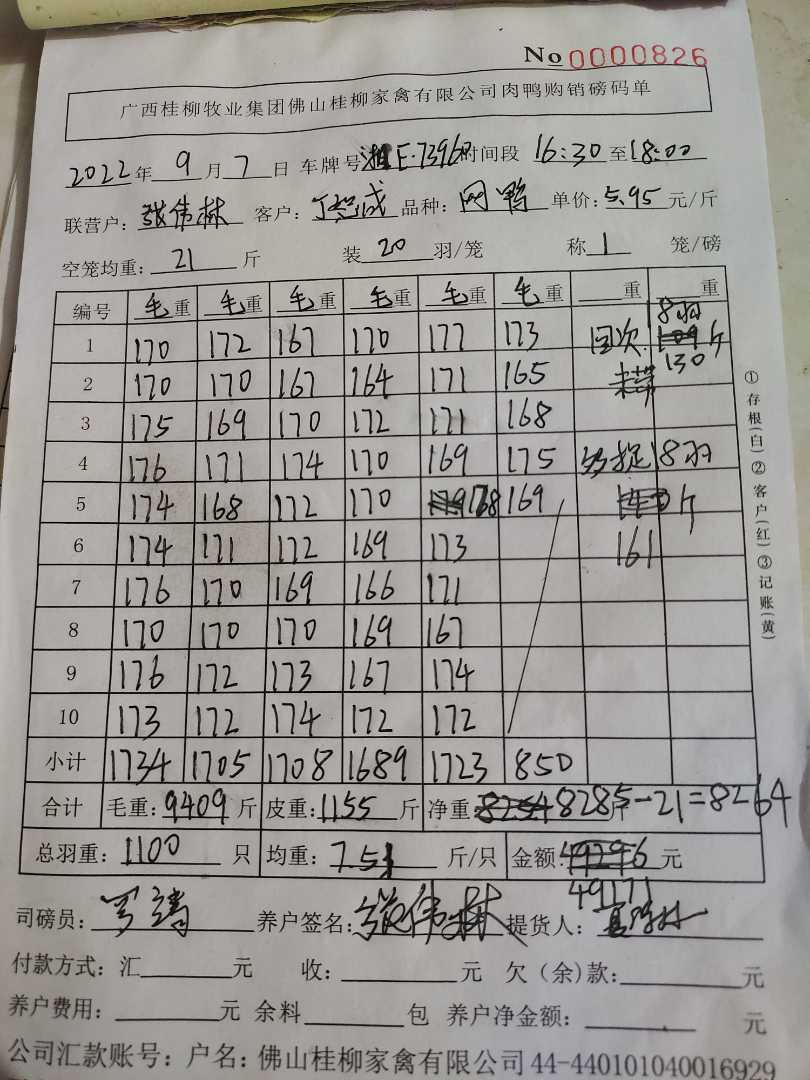 No 0000826
广西桂柳牧业集团佛山桂柳家禽有限公司肉鸭购销磅码单
2022年 9 月 7 日 车牌号 湘E·73960 时间段 16:30 至 18:00
联营户: 张伟林 客户: 品种: 鸭 单价: 5.95 元/斤
空笼均重: 21 斤 装 20 羽/笼 称 1 笼/磅
编号 毛重 毛重 毛重 毛重 毛重 毛重 重 重
8羽
1 170 172 167 170 177 173 回次 斤
130
2 170 170 167 164 171 165
3 175 169 170 172 171 168
4 176 171 174 170 169 175 捉 18羽
5 174 168 172 170 168 169 斤
6 174 171 172 169 173 161
7 176 170 169 166 171
8 170 170 170 169 167
9 176 172 173 167 174
10 173 172 174 172 172
小计 1734 1705 1708 1689 1723 850
合计 毛重: 9409 斤 皮重: 1155 斤 净重: 8285-21=8264 斤
总羽重: 1100 只 均重: 7.51 斤/只 金额: 元
49171
司磅员: 养户签名: 张伟林 提货人:
付款方式: 汇 元 收: 元 欠(余)款: 元
养户费用: 元 余料 包 养户净金额: 元
公司汇款账号: 户名: 佛山桂柳家禽有限公司44-440101040016929
①存根(白)②客户(红)③记账(黄)